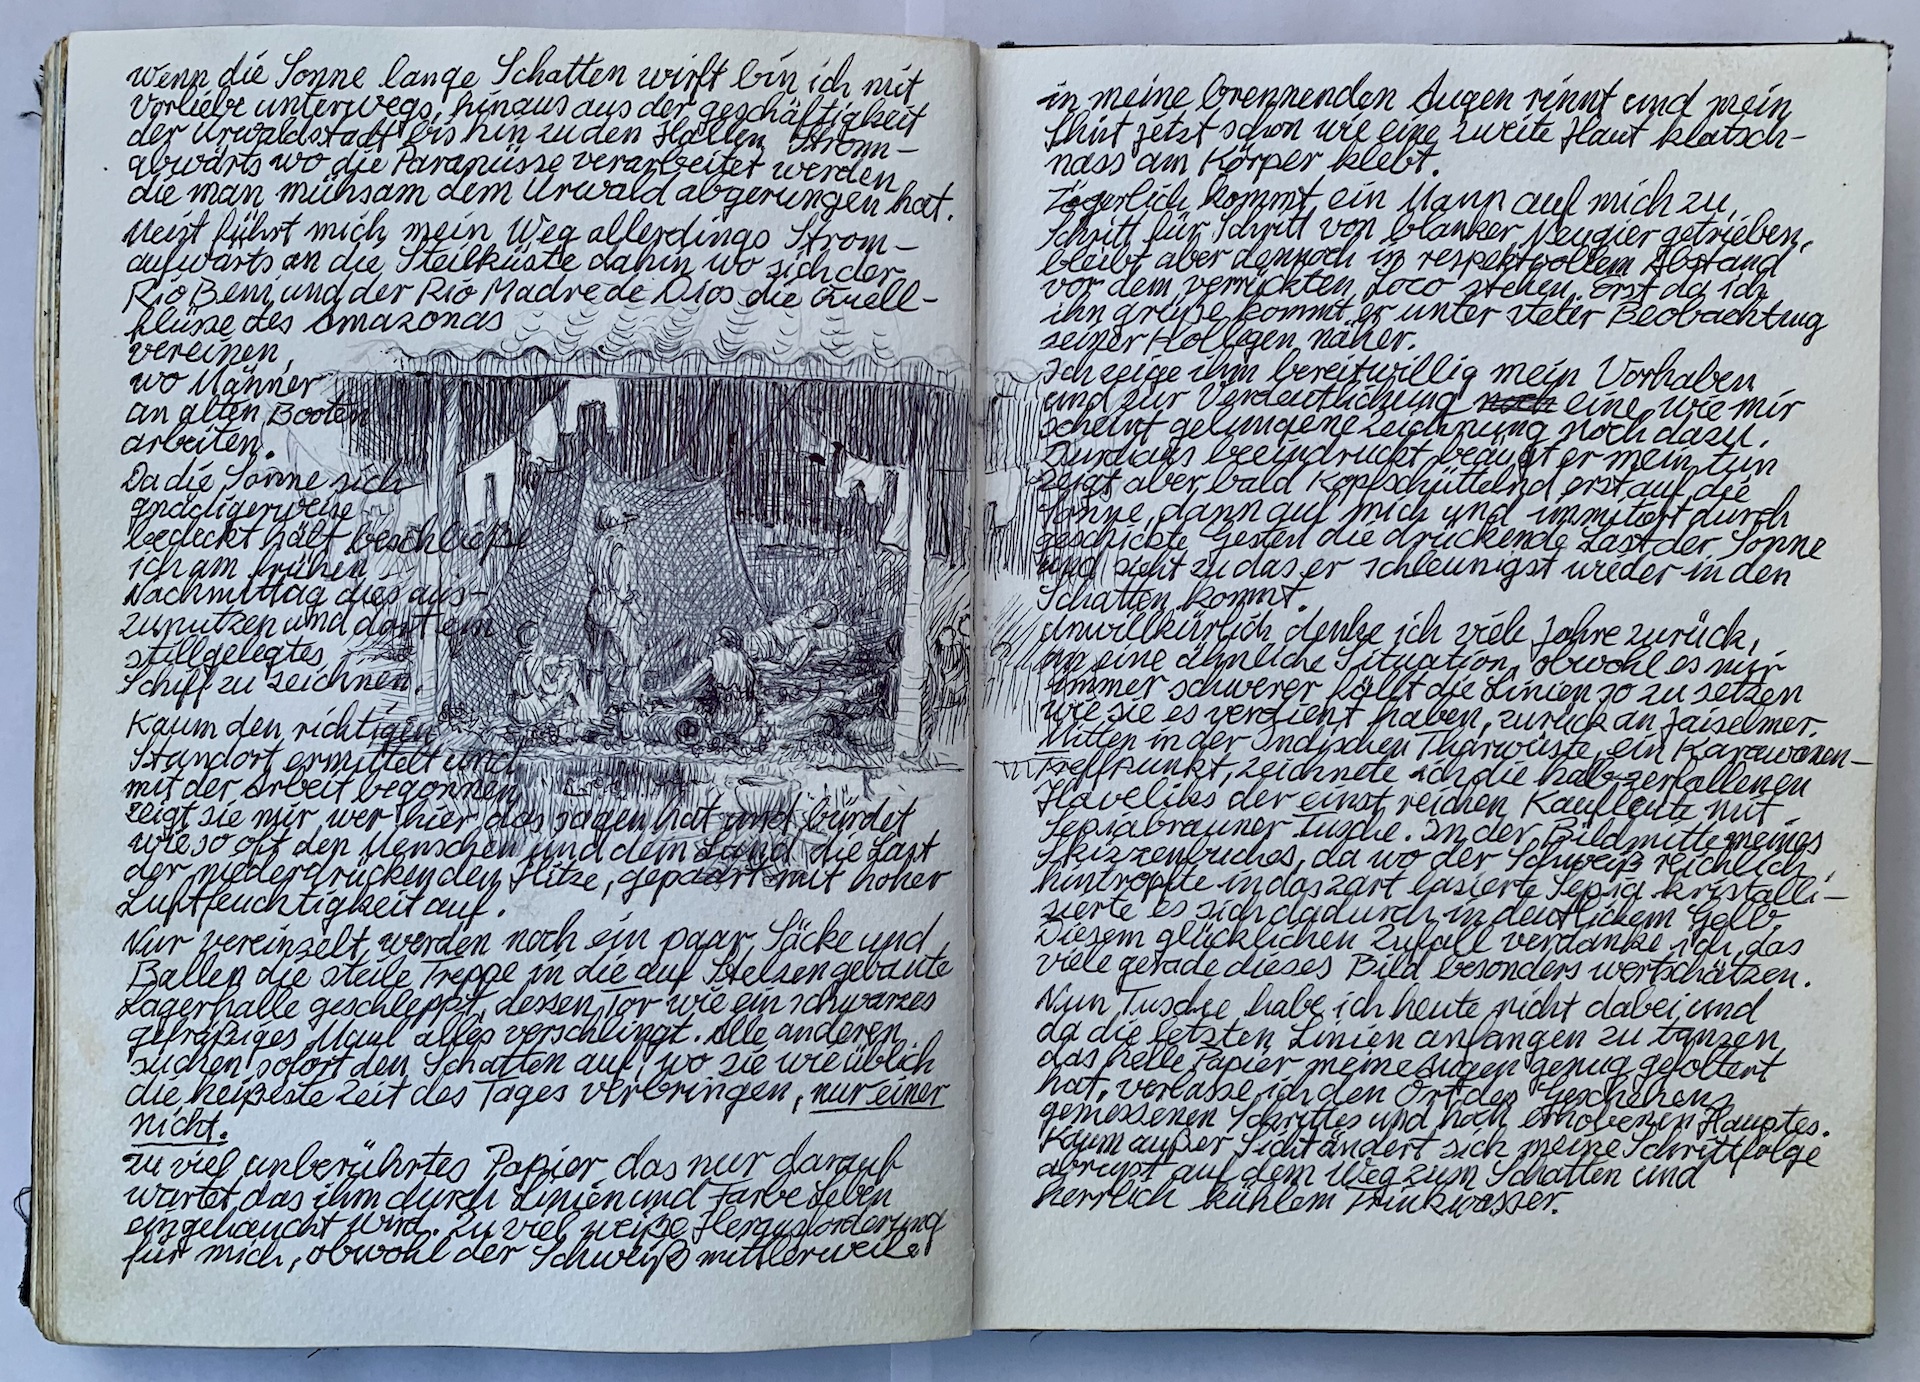 wenn die Sonne lange Schatten wirft bin ich mit
Vorliebe unterwegs, hinaus aus der geschäftigkeit
der Urwaldstadt bis hin zu den Hallen Strom-
abwärts wo die Paranüsse verarbeitet werden
die man mühsam dem Urwald abgerungen hat.
Meist führt mich mein Weg allerdings Strom-
aufwärts an die Steilküste dahin wo sich der
Rio Beni und der Rio Madre de Dios die Quell-
flüsse des Amazonas
vereinen,
wo Männer
an alten Booten
arbeiten.
Da die Sonne sich
gnädigerweise
bedeckt hält beschließe
ich am frühen
Nachmittag dies aus-
zunutzen und dort ein
stillgelegtes
Schiff zu zeichnen.
Kaum den richtigen
Standort ermittelt und
mit der Arbeit begonnen
zeigt sie mir wer hier das sagen hat und bürdet
wie so oft den Menschen und dem Land die Last
der niederdrückenden Hitze, gepaart mit hoher
Luftfeuchtigkeit auf.
Nur vereinzelt werden noch ein paar Säcke und
Ballen die steile Treppe in die auf Stelzen gebaute
Lagerhalle geschleppt, dessen Tor wie ein schwarzes
gefräßiges Maul alles verschlingt. Alle anderen
suchen sofort den Schatten auf, wo sie wie üblich
die heißeste Zeit des Tages verbringen, nur einer
nicht.
Zu viel unberührtes Papier das nur darauf
wartet das ihm durch Linien und Farbe Leben
eingehaucht wird. Zu viel weiße Herausforderung
für mich, obwohl der Schweiß mittlerweile
in meine brennenden Augen rinnt und mein
Shirt jetzt schon wie eine zweite Haut klatsch-
nass am Körper klebt.
Zögerlich kommt ein Mann auf mich zu,
Schritt für Schritt von blanker Neugier getrieben,
bleibt aber dennoch in respektvollem Abstand
vor dem verrückten Loco stehen. Erst da ich
ihn grüße kommt er unter steter Beobachtung
seiner Kollegen näher.
Ich zeige ihm bereitwillig mein Vorhaben
und zur Verdeutlichung eine, wie mir
scheint gelungene Zeichnung noch dazu.
Durchaus beeindruckt beäugt er mein tun
zeigt aber bald Kopfschüttelnd erst auf die
Sonne, dann auf mich und immitiert durch
geschickte Gesten die drückende Last der Sonne
und sieht zu das er schleunigst wieder in den
Schatten kommt.
Unwillkürlich denke ich viele Jahre zurück,
an eine ähnliche Situation, obwohl es mir
immer schwerer fällt die Linien so zu setzen
wie sie es verdient haben, zurück an Jaiselmer.
Mitten in der Indischen Tharwüste, ein Karawanen-
treffpunkt, zeichnete ich die halbzerfallenen
Haveliks der einst reichen Kaufleute mit
Sepiabrauner Tusche. In der Bildmitte meines
Skizzenbuches, da wo der Schweiß reichlich
hintropfte in das zart lasierte Sepia kristalli-
sierte es sich dadurch in deutlichem Gelb.
Diesem glücklichen Zufall verdanke ich, das
viele gerade dieses Bild besonders wertschätzen.
Nun Tusche habe ich heute nicht dabei und
da die letzten Linien anfangen zu tanzen
das helle Papier meine Augen genug gefoltert
hat, verlasse ich den Ort des Geschehens
gemessenen Schrittes und hoch erhobenen Hauptes.
Kaum außer Sicht ändert sich meine Schrittfolge
abrupt auf dem Weg zum Schatten und
herrlich kühlem Trinkwasser.